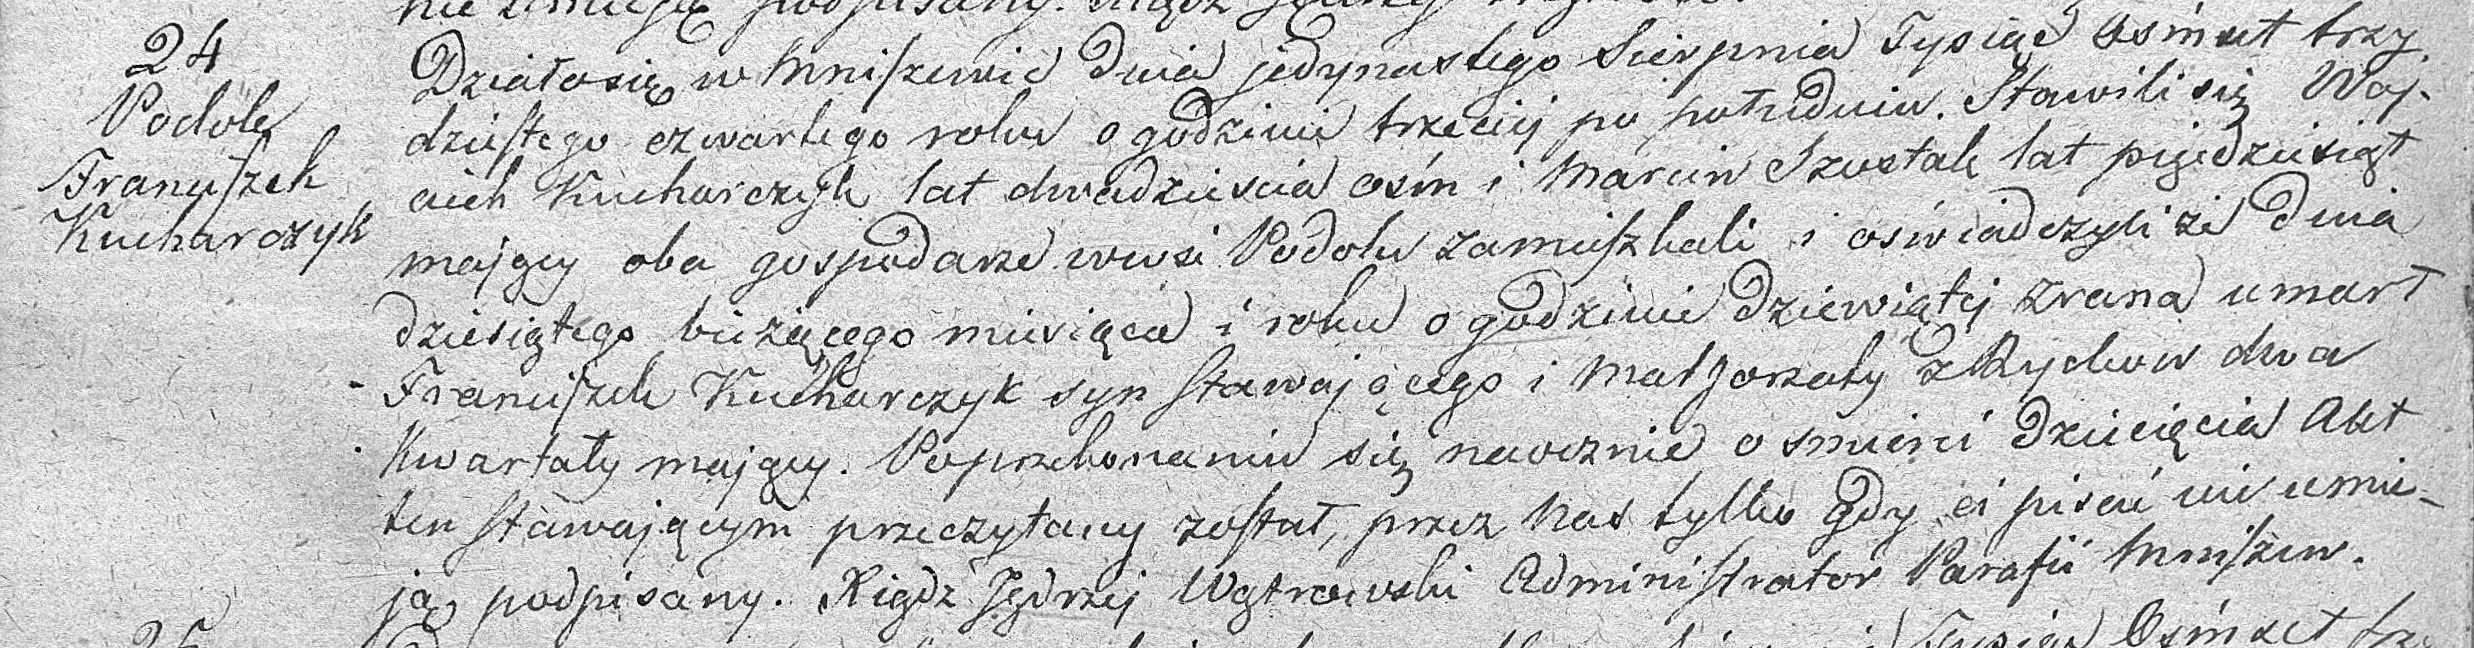 nie umieją podpisany.
24
Podole
Franciszek
Kucharczyk
Działo się w Mniszewie dnia jedynastego Sierpnia Tysiąc Ośmset trzy
dziestego czwartego roku o godzinie trzeciej po południu. Stawili się Woj-
ciech Kucharczyk lat dwadzieścia ośm i Marcin Szostak lat pięćdziesiąt
mający oba gospodarze wwsi Podolu zamieszkali i oświadczyli że dnia
dziesiątego bieżącego miesiąca i roku o godzinie dziewiątej zrana umarł
Franciszek Kucharczyk syn stawającego i Małgorzaty z Rychów dwa
kwartały mający. Poprzekonaniu się naocznie o śmierci dziecięcia Akt
ten stawającym przeczytany został, przez Nas tylko gdy ci pisać nie umie-
ją podpisany. Xiądz Jędrzej Wątrowski Administrator Parafii Mniszew.
25
Tysiąc Ośmset trz